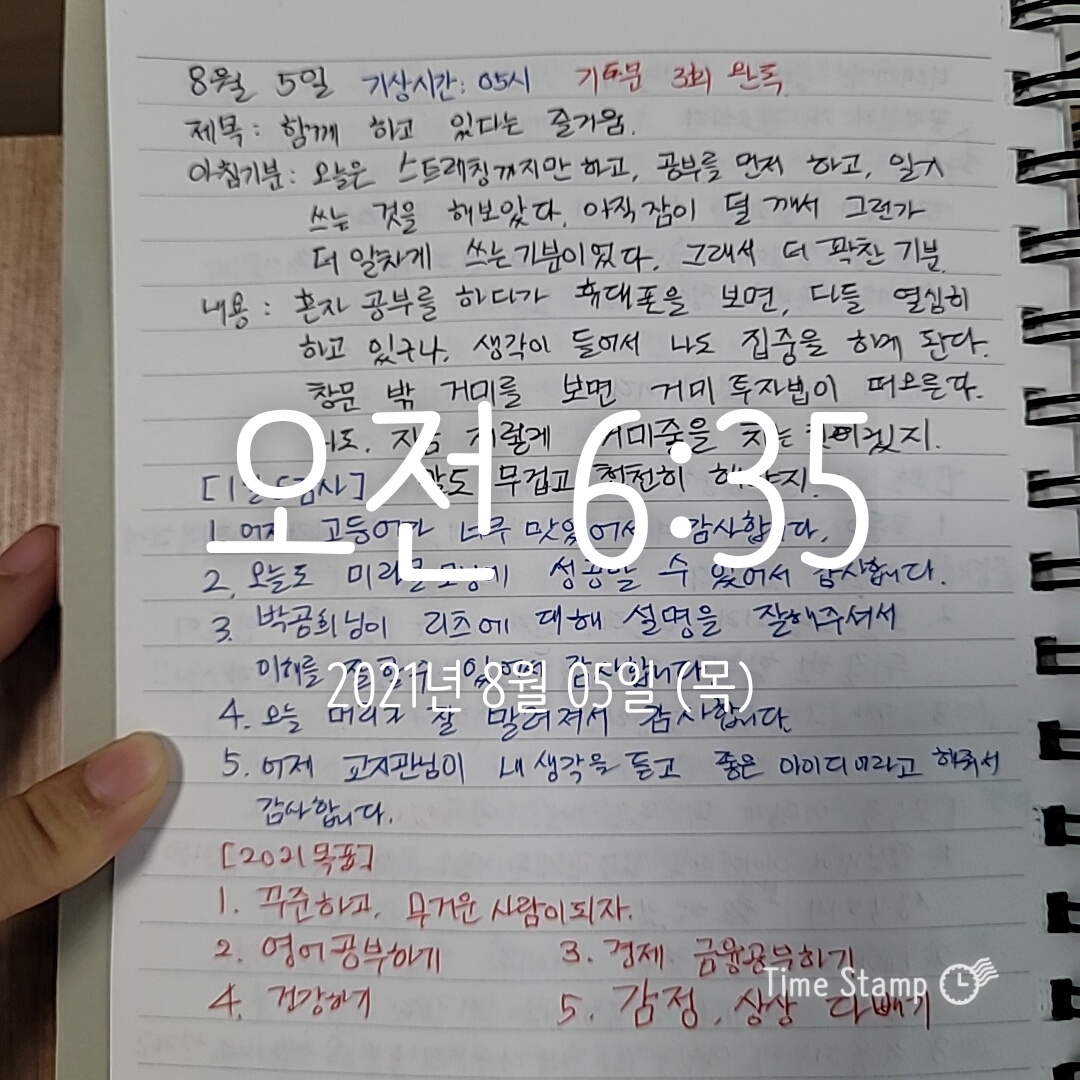 8월 5일 기상시간: 05시 기도문 3회 완독
제목: 함께 하고 있다는 즐거움.
아침기분: 오늘은 스트레칭까지만 하고, 공부를 먼저 하고, 일기
쓰는 것을 해보았다. 아직 잠이 덜 깨서 그런가
더 알차게 쓰는 기분이었다. 그래서 더 꽉찬 기분
내용: 혼자 공부를 하다가 휴대폰을 보면, 다들 열심히
하고 있구나, 생각이 들어서 나도 집중을 하게 된다.
창문 밖 거미를 보면 거미 투자법이 떠오른다.
지금 저렇게 거미줄을 치는
무겁고 천천히 해야지.
오전 6:35
1. 어제 고등어가 너무 맛있어서 감사합니다.
2. 오늘도 미라클모닝에 성공할 수 있어서 감사합니다.
3. 박공희님이 리츠에 대해 설명을 잘해주셔서
이해를 잘 할 수 있어서 감사합니다.
2021년 8월 05일 (목)
4. 오늘 머리가 잘 말려져서 감사합니다.
5. 어제 교지관님이 내 생각을 듣고 좋은 아이디어라고 해줘서
감사합니다.
[2021 목표]
1. 꾸준하고, 무거운 사람이되자.
2. 영어공부하기 3. 경제 금융공부하기
Time Stamp
4. 건강하기 5. 감정, 상상 다빼기